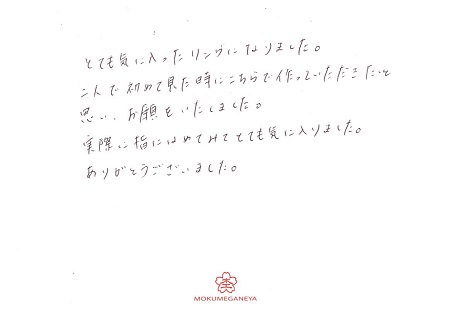 とても気に入ったリングになりました。
二人で初めて見た時にこちらで作っていただきたいと
思い、お願をいたしました。
実際に指にはめてみてとても気に入りました。
ありがとうございました。
MOKUMEGANEYA